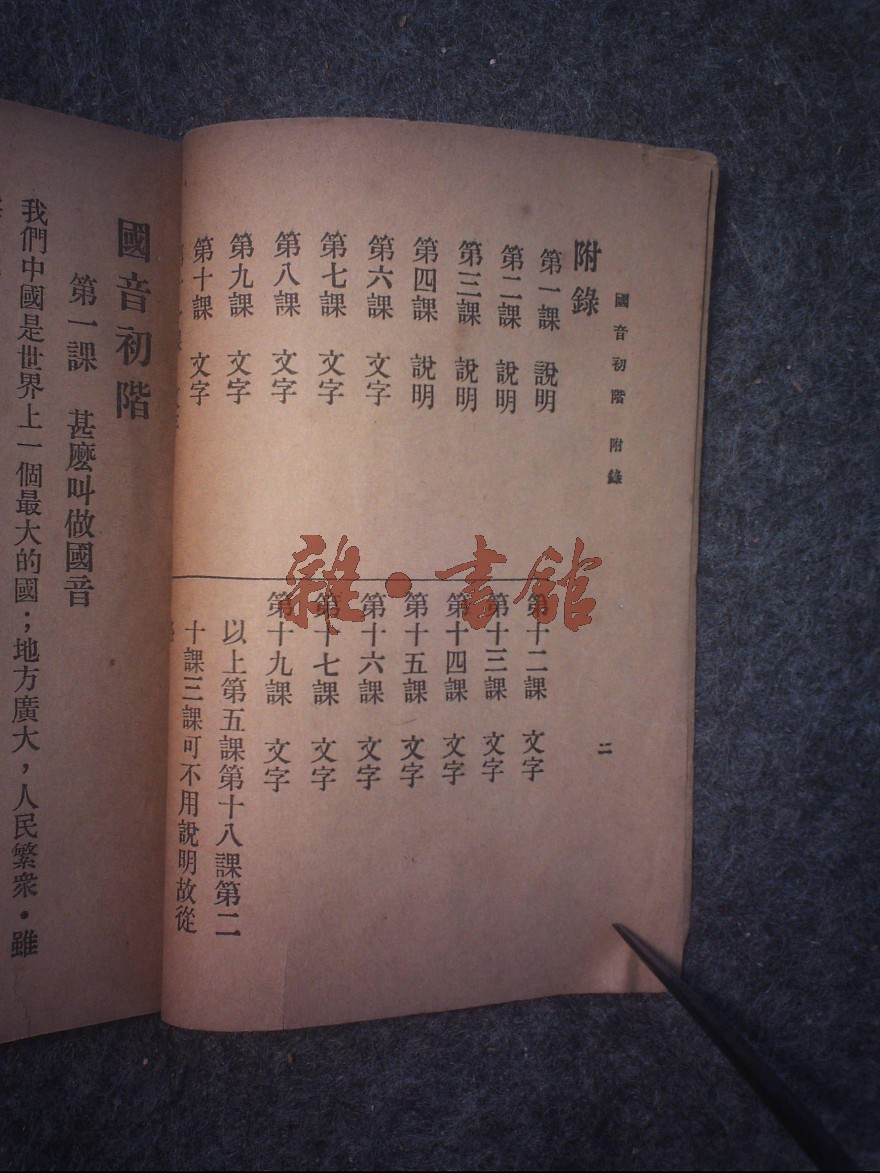 國音初階 附錄
二
附錄
第一課 說明
第二課 說明
第三課 說明
第四課 說明
第六課 文字
第七課 文字
第八課 文字
第九課 文字
第十課 文字
第十二課 文字
第十三課 文字
第十四課 文字
第十五課 文字
第十六課 文字
第十七課 文字
第十九課 文字
以上第五課第十八課第二
十課三課可不用說明故從
國音初階
第一課 甚麼叫做國音
我們中國是世界上一個最大的國；地方廣大，人民繁衆．雖
雜·書館